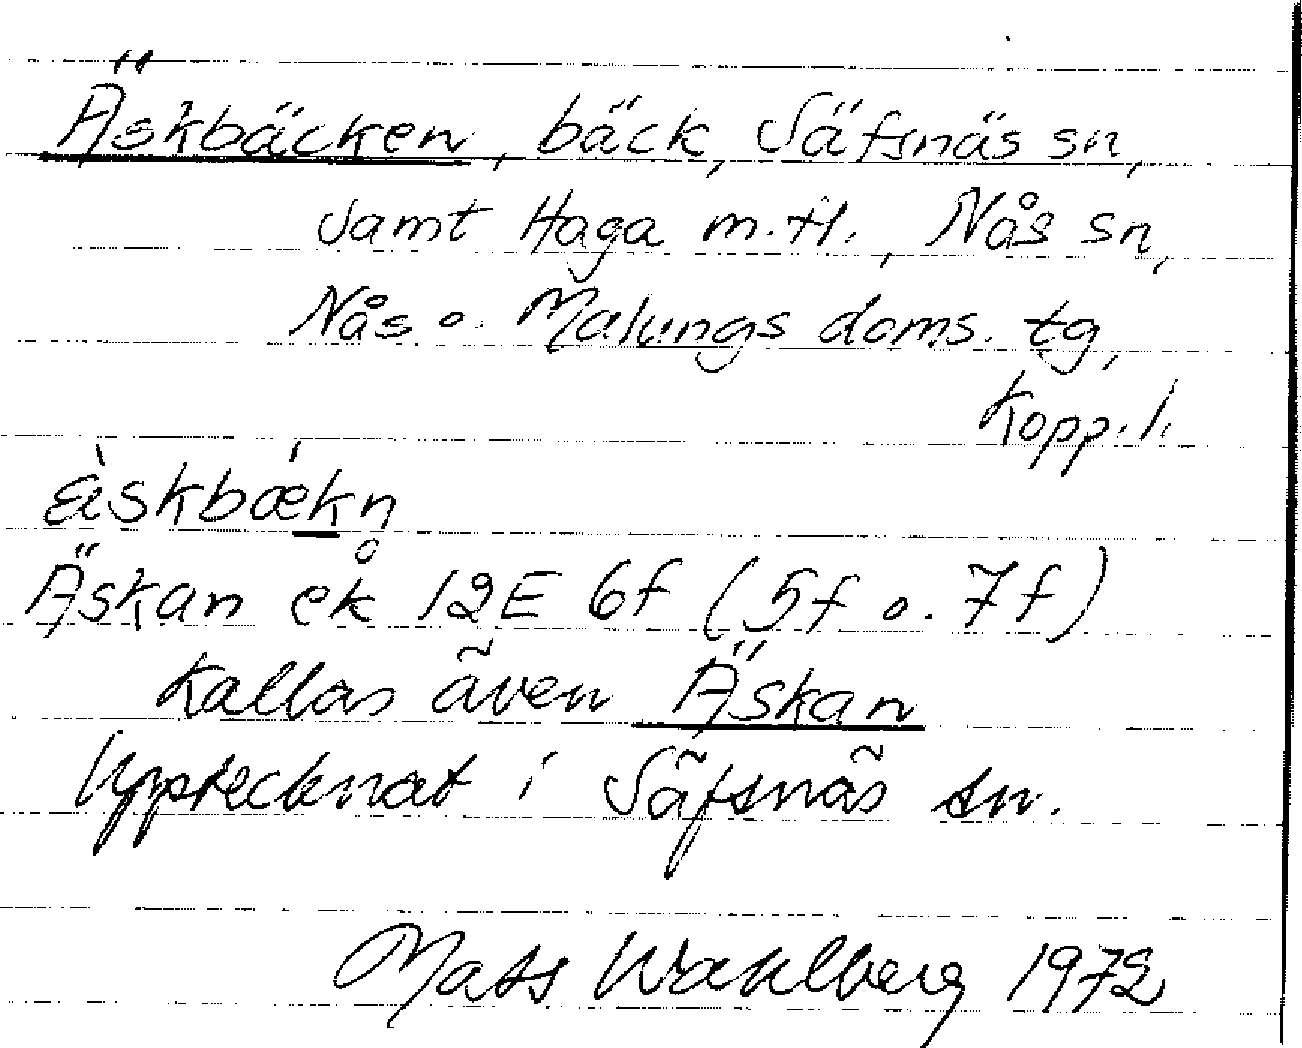 Äskbäcken, bäck, Säfsnäs sn,
samt Haga m.fl., Nås sn,
Nås o. Malungs doms. tg,
Kopp.l.
æ̀skbǽkn
Äskån ek 12E 6f (5f o. 7f)
Kallas även Äskan
Upptecknat i Säfsnäs sn.
Mats Wahlberg 1972